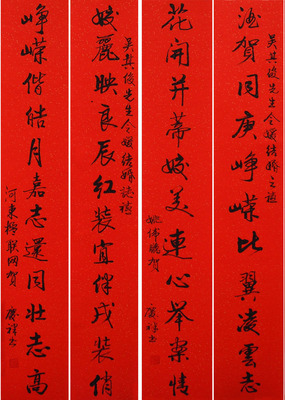 吴其俊先生令嫒结婚之禧
酒賀同庚峥嵘比翼凌雲志
花開并蒂姣美連心举案情
賀
廣祥书
吴其俊先生令嫒结婚誌禧
姣麗映良辰紅装宜伴戎装俏
峥嵘偕皓月嘉志還同壮志高
河東楹联网贺
廣祥书